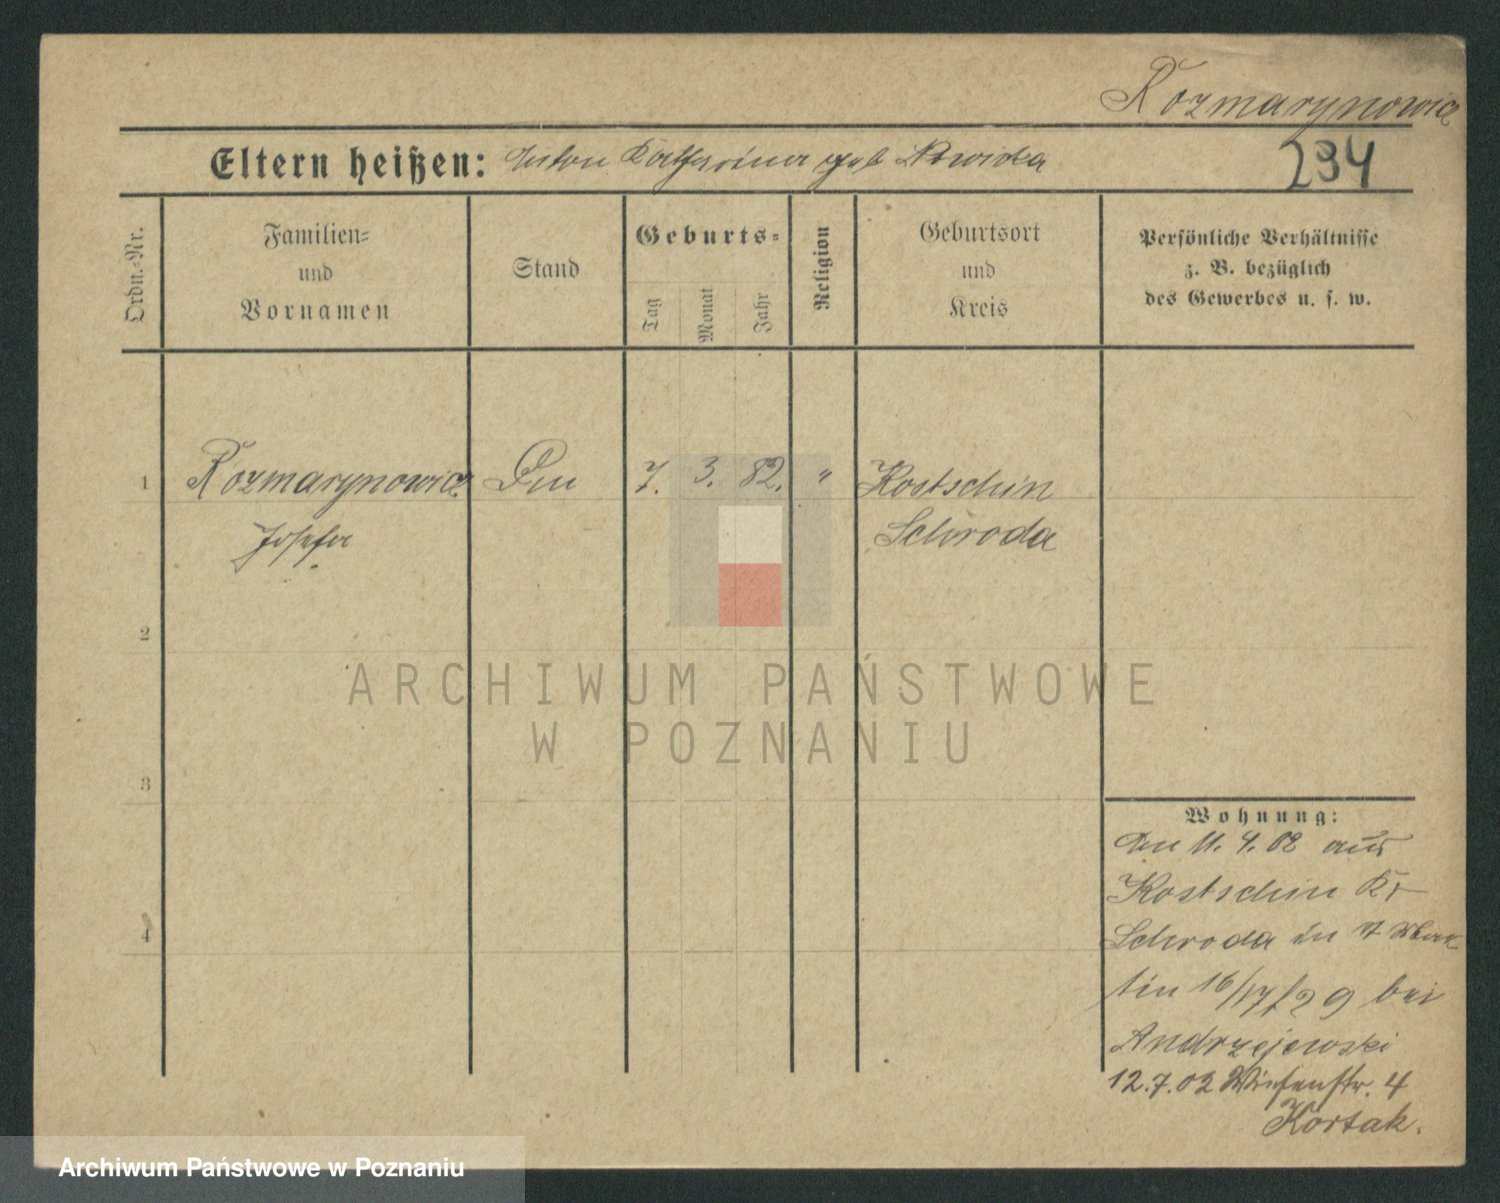 Rozmarynowicz
294
Eltern heißen: Anton Katharina geb Nowicka
Ordn.-Nr.
Familien-
und
Vornamen
Stand
Geburts-
Tag
Monat
Jahr
Religion
Geburtsort
und
Kreis
Persönliche Verhältnisse
z. B. bezüglich
des Gewerbes u. s. w.
1 Rozmarynowicz 7. 3. 82. " Kostschin
Josefa Schroda
2
3
4
ARCHIWUM PAŃSTWOWE
W POZNANIU
Wohnung:
Den 11. 4. 02 aus
Kostschin Kr
Schroda in St
tin 16/17/29 bei
Andrzejewski
12.7.02 Wiesenstr. 4
Kortak.
Archiwum Państwowe w Poznaniu